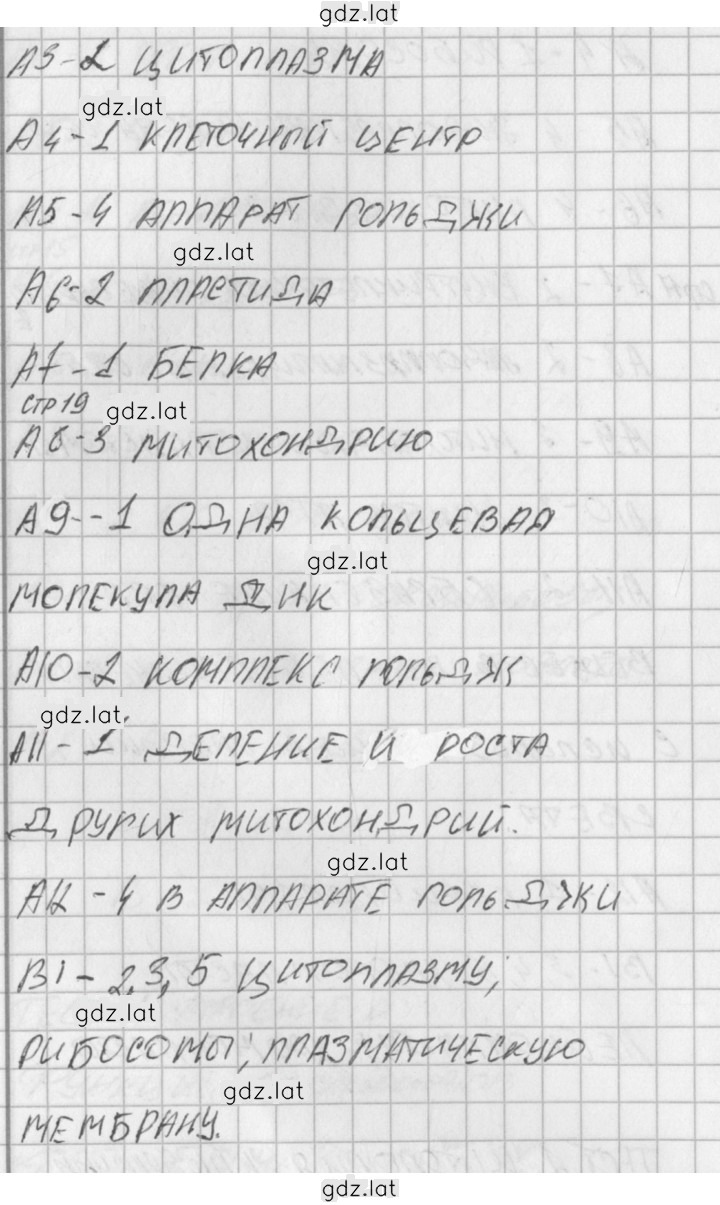 gdz.lat
А3-2 ЦИТОПЛАЗМА
gdz.lat
А4-1 КЛЕТОЧНЫЙ ЦЕНТР
А5-4 АППАРАТ ГОЛЬДЖИ
gdz.lat
А6-2 ПЛАСТИДА
А7-1 БЕЛКА
СТР 19
gdz.lat
А8-3 МИТОХОНДРИЮ
А9--1 ОДНА КОЛЬЦЕВАЯ
gdz.lat
МОЛЕКУЛА ДНК
А10-2 КОМПЛЕКС ГОЛЬДЖ
gdz.lat
А11-1 ДЕЛЕНИЕ И РОСТА
ДРУГИХ МИТОХОНДРИЙ.
gdz.lat
А12-4 В АППАРАТЕ ГОЛЬДЖИ
В1-2,3,5 ЦИТОПЛАЗМУ;
gdz.lat
РИБОСОМЫ; ПЛАЗМАТИЧЕСКУЮ
gdz.lat
МЕМБРАНУ.
gdz.lat